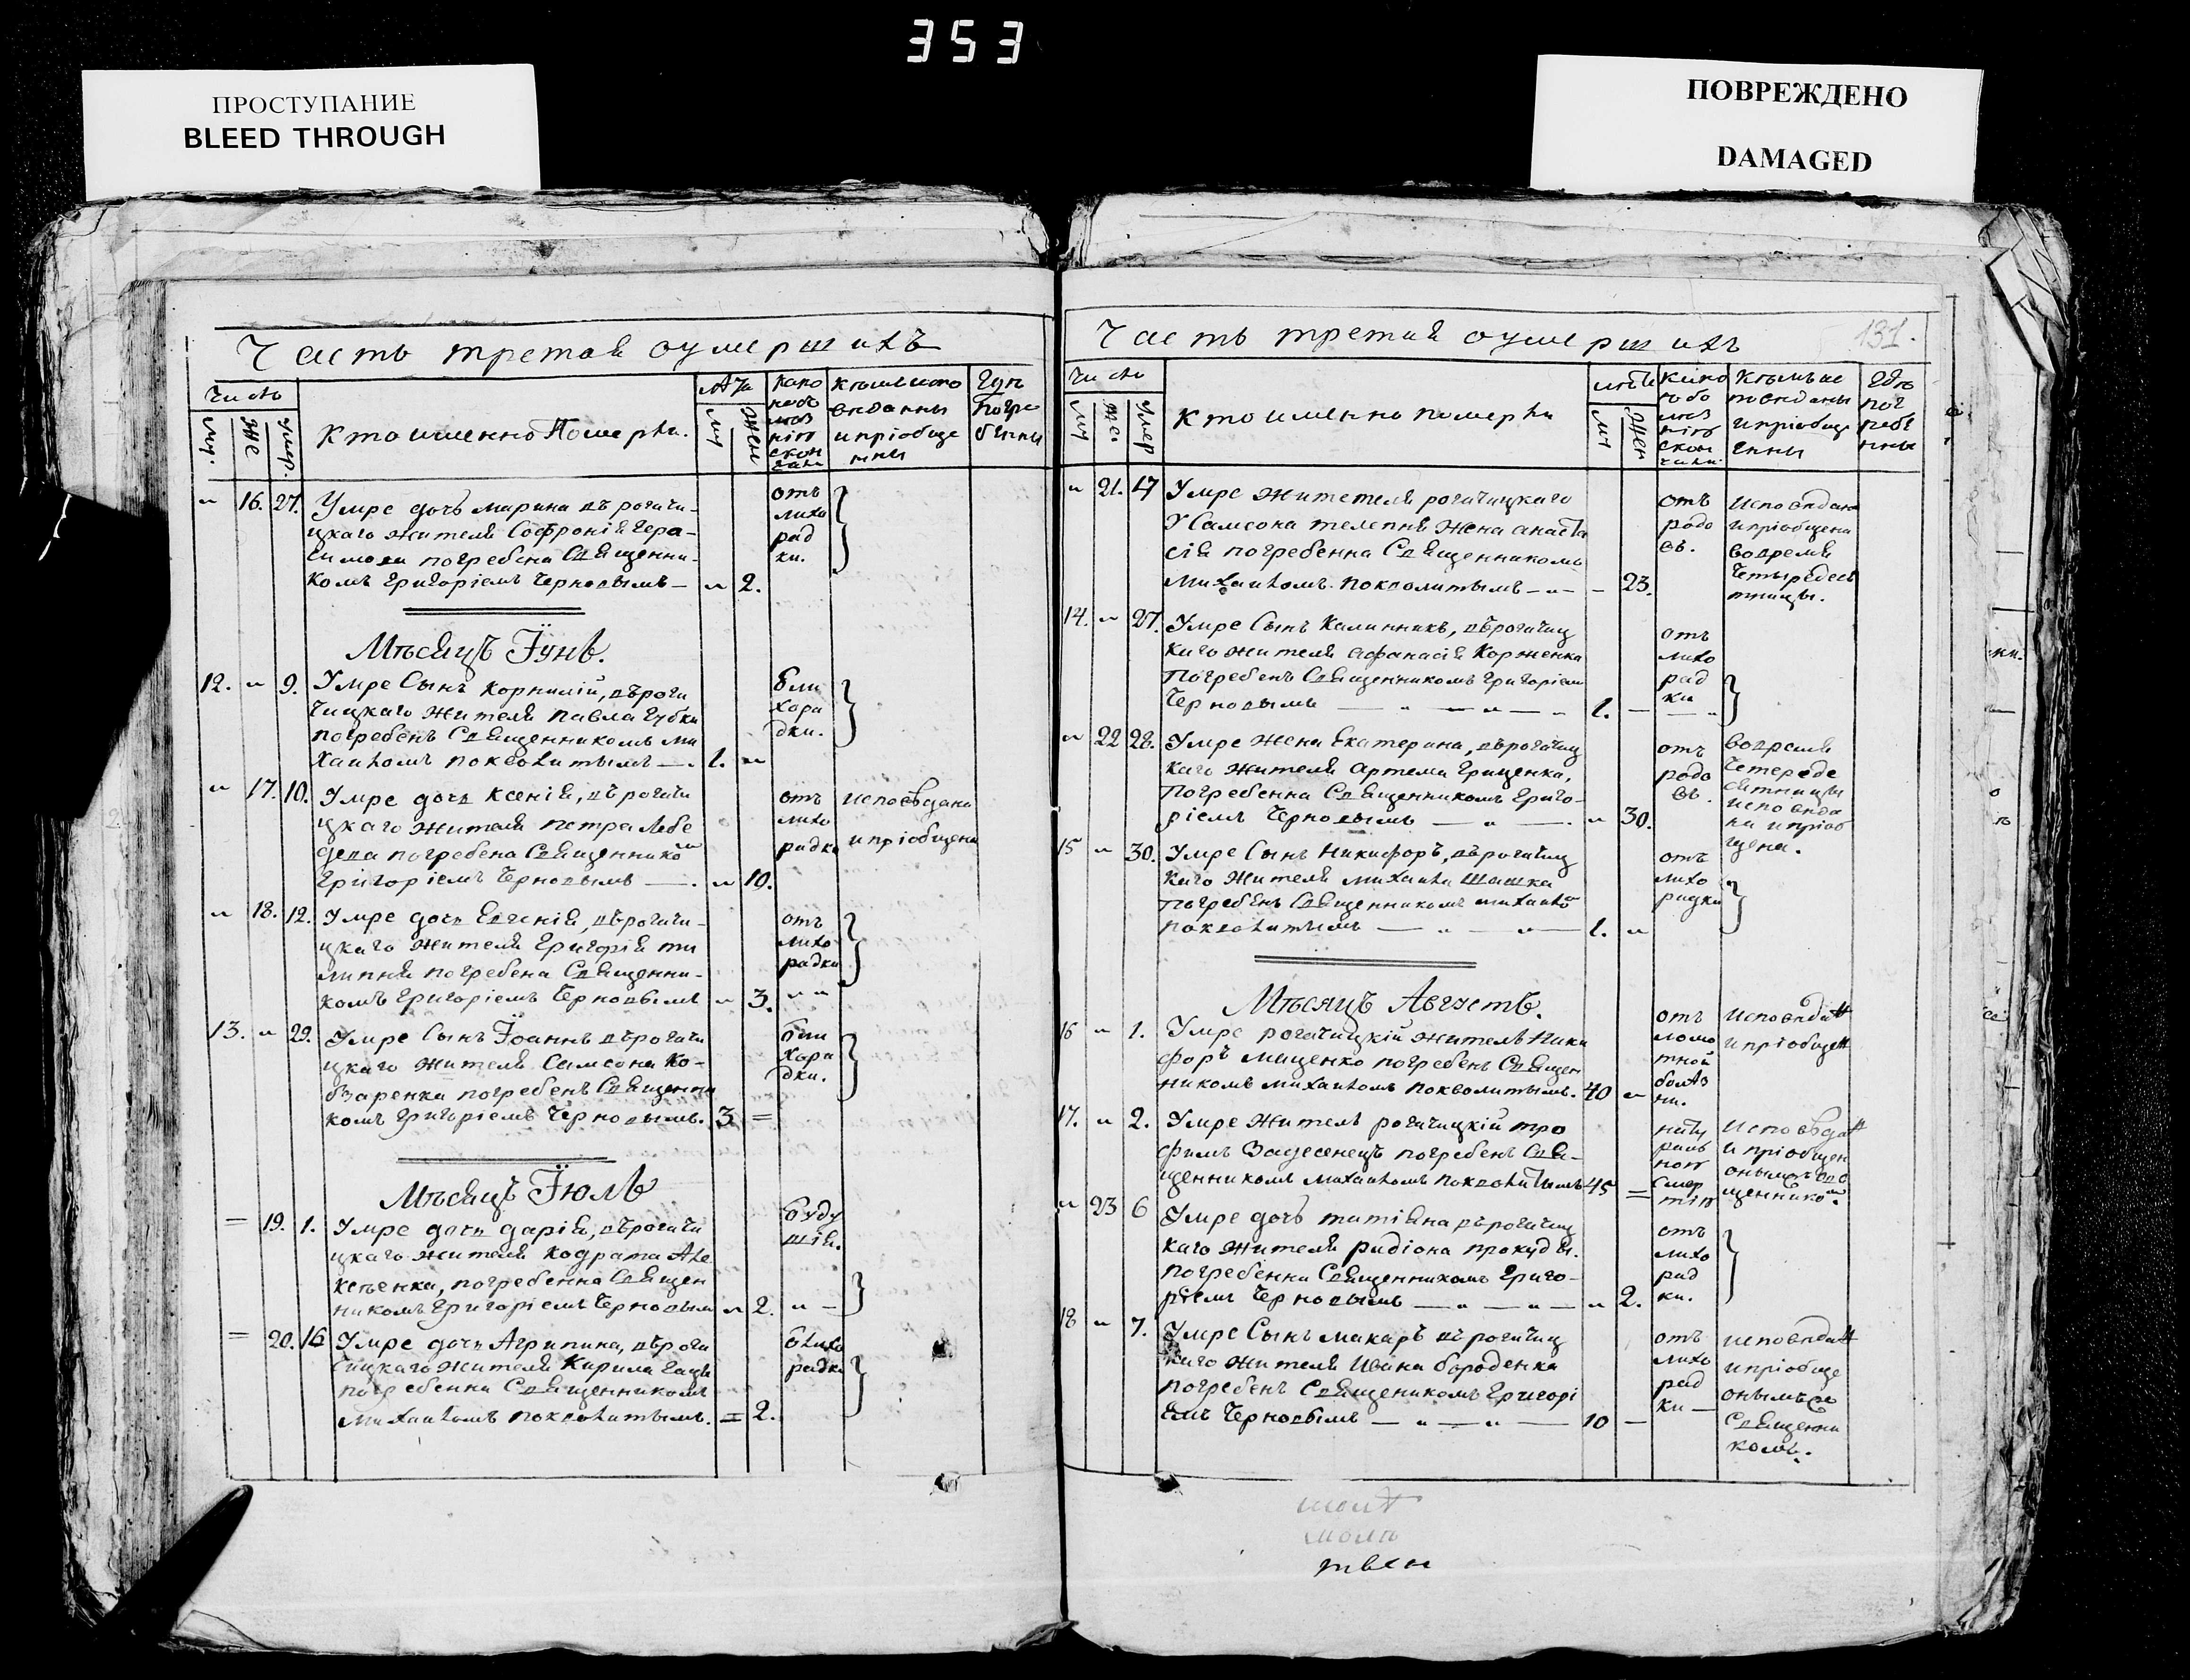 353
ПРОСТУПАНИЕ
BLEED THROUGH
ПОВРЕЖДЕНО
DAMAGED
Часть третая оумершихъ
Число
му. же умер.
Кто именно Померъ.
му жен
16. 27. Умре дочь марина дъ рогачи-
цкаго жителя Софронія Гера-
симова погребена Священни-
комъ Григоріемъ Черновымъ — 2.
отъ
лихо
рад
ки.
Мѣсяцъ Їунь.
12. 9. Умре Сынъ Корнилій, дъ рога
чицкаго жителя павла Губки
погребенъ Священникомъ ми
хаиломъ поквалитымъ — 1.
бли
хора
дки.
17. 10. Умре дочь Ксенія, дъ рогачи
цкаго жителя петра лебе
дева погребена Священнико
Григоріемъ Черновымъ — 10.
отъ
лихо
радки
исповѣдана
и пріобщена
18. 12. Умре дочь Евгенія, дъ рогачи-
цкаго жителя Григорія ти
липня погребена Священни-
комъ Григоріемъ Черновымъ 3.
отъ
лихо
радки
13. 29. Умре Сынъ Їоаннъ дъ рогачи
цкаго жителя Самсона Ко-
баренка погребенъ Священни
комъ Григоріемъ Черновымъ. 3 =
хора
дки.
Мѣсяцъ Їюль
= 19. 1. Умре дочь дарія, дъ рогачи
цкаго жителя Кодрата Але
ксѣенка, погребенна Священ
никомъ Григоріемъ Черновым 2.
= 20. 16 Умре дочь Агрипина, дъ рога
чицкаго жителя Кирила
погребенна Священникомъ
михаиломъ поквалитымъ. = 2.
радки
Часть третия оумершихъ
131.
Число
му же умер
Кто именно померъ
лѣта
му жен
21. 17 Умре жителя рогачицкаго
У Самсона телепня жена анаста
сія погребенна Священникомъ
михаиломъ поквалитымъ — 23.
отъ
родо
въ.
исповѣдана
и пріобщена
во время
Четыредеся
тницы.
14. 27. Умре Сынъ Калинникъ, дъ рогачиц
каго жителя афанасія Корженка
Погребенъ Священникомъ Григоріем
Черновымъ — 1.
отъ
лихо
рад
ки
22 22. Умре жена Екатерина, дъ рогачиц
каго жителя артема Гриценка,
Погребенна Священникомъ Григо-
ріемъ Черновымъ — 30.
отъ
родо
въ.
во время
Четереде
сятницы
исповѣда
на и пріоб
щена.
15 30. Умре Сынъ Никифоръ, дъ рогачиц
каго жителя михаила Шашка
погребенъ Священникомъ михаило
поквалитымъ — 1.
отъ
лихо
радки
Мѣсяцъ Августъ.
16 1. Умре рогачицкій житель Ники
форъ мищенко погребенъ Священ
никомъ михаиломъ поквалитымъ. 40
отъ
ломо
тной
болѣз
ни.
исповѣдан
и пріобщен
17. 2. Умре житель рогачицкій тро
фимъ Задесенецъ погребенъ Свя-
щенникомъ михаиломъ поквалитымъ 45 =
нату
раль
ной
смер
тію
исповѣдан
и пріобщен
онымъ же свя
щеннико.
23 6 Умре дочь татіяна дъ рогачиц
каго жителя радіона прокуды.
погребенна Священникомъ Григо-
ріемъ Черновымъ — 2.
отъ
лихо
рад
ки.
18 7. Умре Сынъ макаръ дъ рогачиц
каго жителя Ивана бороденка
погребенъ Священикомъ Григорі
емъ Черновымъ — 10 —
отъ
лихо
рад
ки —
исповѣдан
и пріобще
онымъ же
Священни
комъ.